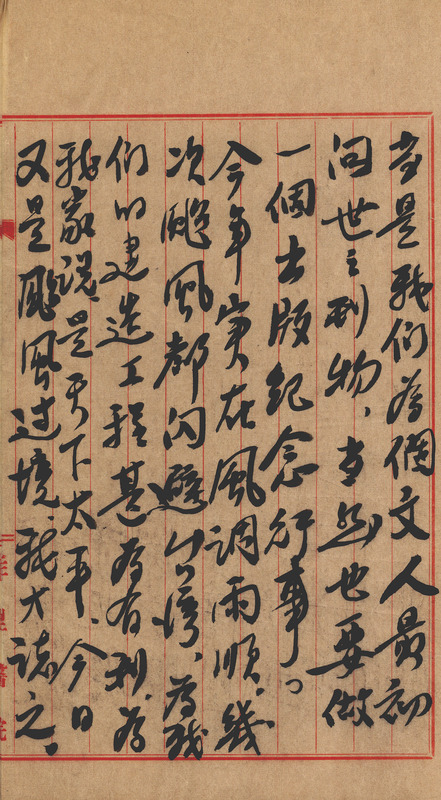 當是我们為個文人最初
问世之刊物、當然也要做
一個出版紀念行事。
今年實在風调雨順。幾
次颱風都闪避台湾、為我
们的建造工程甚為有利。為
我家说是天下太平、今日
又是颱風过境。我大誌之。